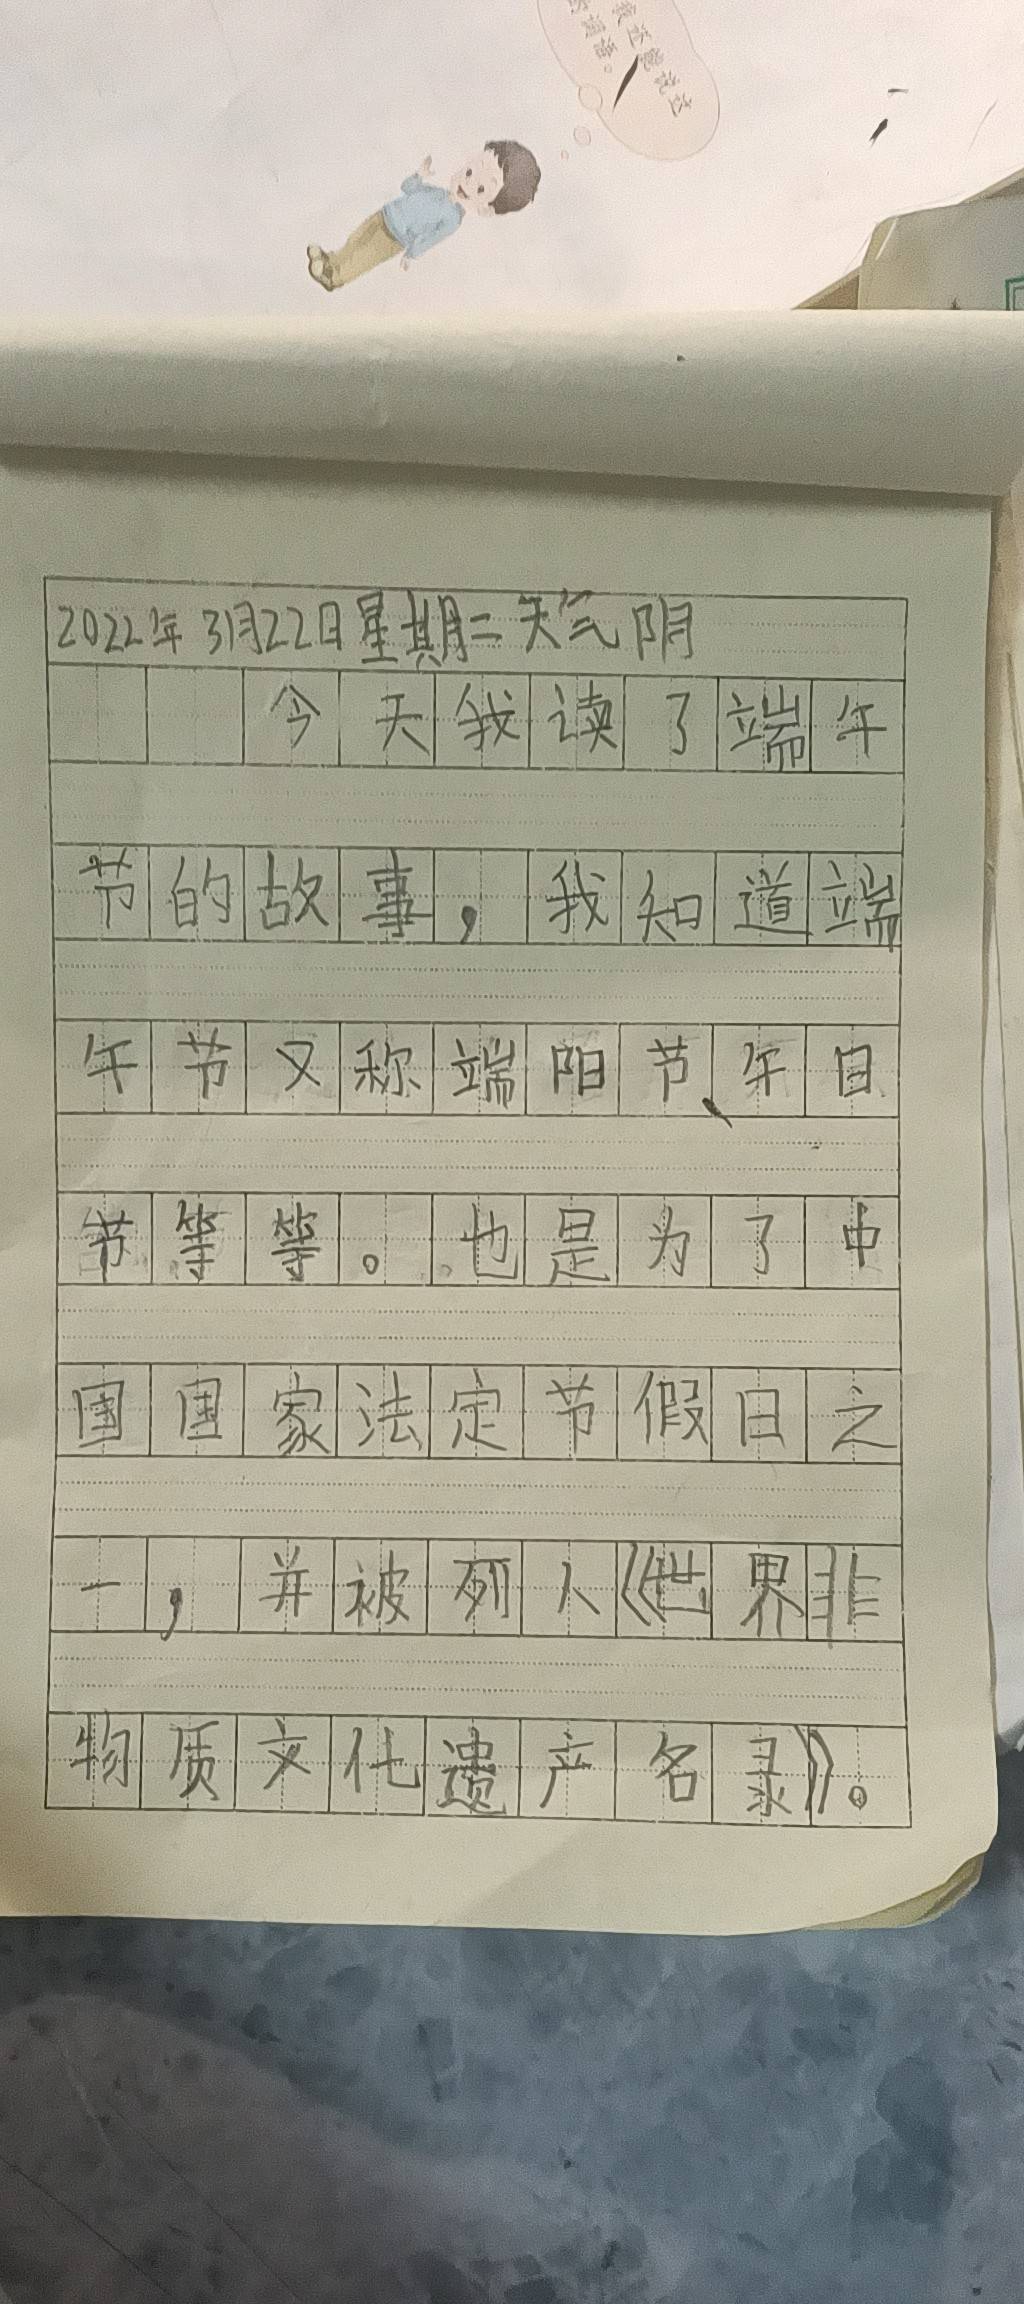 我还能说这
的词语。
2022年3月22日星期二天气阴
今天我读了端午
节的故事,我知道端
午节又称端阳节、午日
节等等。也是为了中
国国家法定节假日之
一,并被列入《世界非
物质文化遗产名录》。